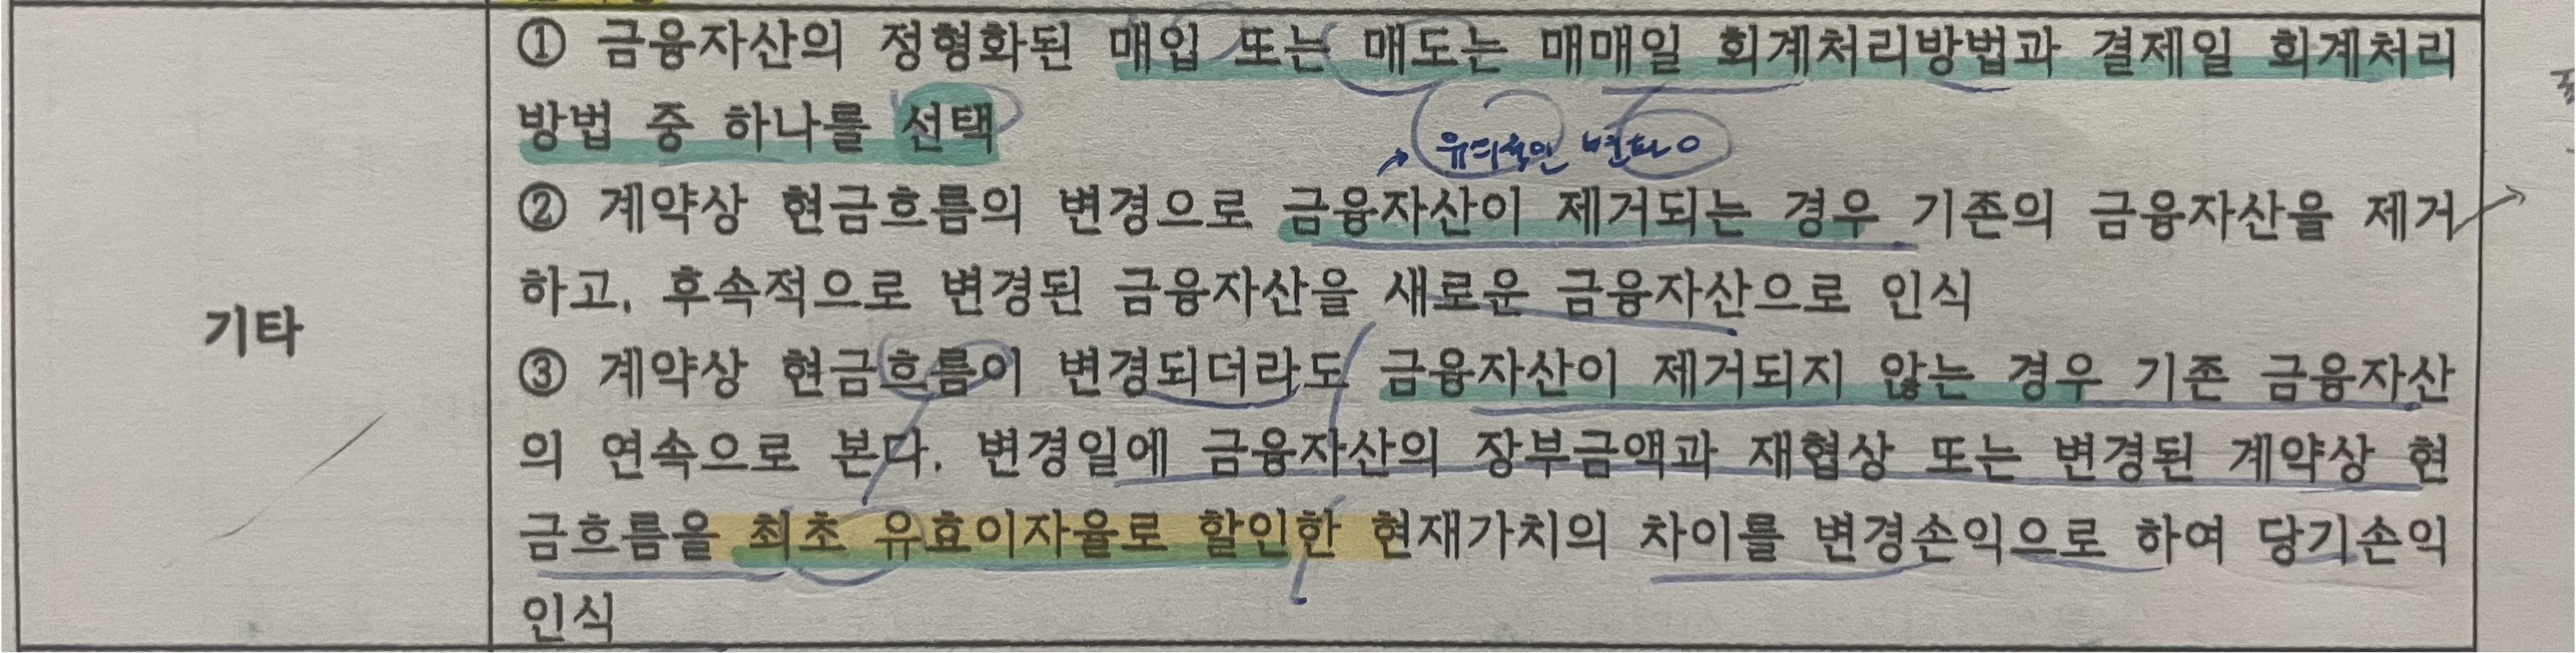 ① 금융자산의 정형화된 매입 또는 매도는 매매일 회계처리방법과 결제일 회계처리
방법 중 하나를 선택
유의적인 변화 O
② 계약상 현금흐름의 변경으로 금융자산이 제거되는 경우 기존의 금융자산을 제거
하고, 후속적으로 변경된 금융자산을 새로운 금융자산으로 인식
기타
③ 계약상 현금흐름이 변경되더라도 금융자산이 제거되지 않는 경우 기존 금융자산
의 연속으로 본다. 변경일에 금융자산의 장부금액과 재협상 또는 변경된 계약상 현
금흐름을 최초 유효이자율로 할인한 현재가치의 차이를 변경손익으로 하여 당기손익
인식